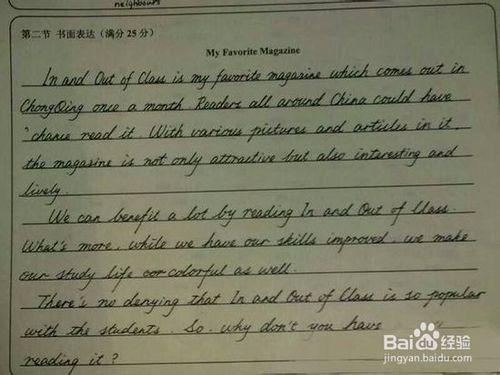 neighbours
第二节 书面表达（满分 25 分）
My Favorite Magazine
In and Out of Class is my favorite magazine which comes out in
ChongQing once a month. Readers all around China could have
chance read it. With various pictures and articles in it,
the magazine is not only attractive but also interesting and
lively.
We can benefit a lot by reading In and Out of Class.
What's more, while we have our skills improved, we make
our study life cor colorful as well.
There's no denying that In and Out of Class is so popular
with the students. So, why don't you have
reading it?
Baidu 经验
jingyan.baidu.com